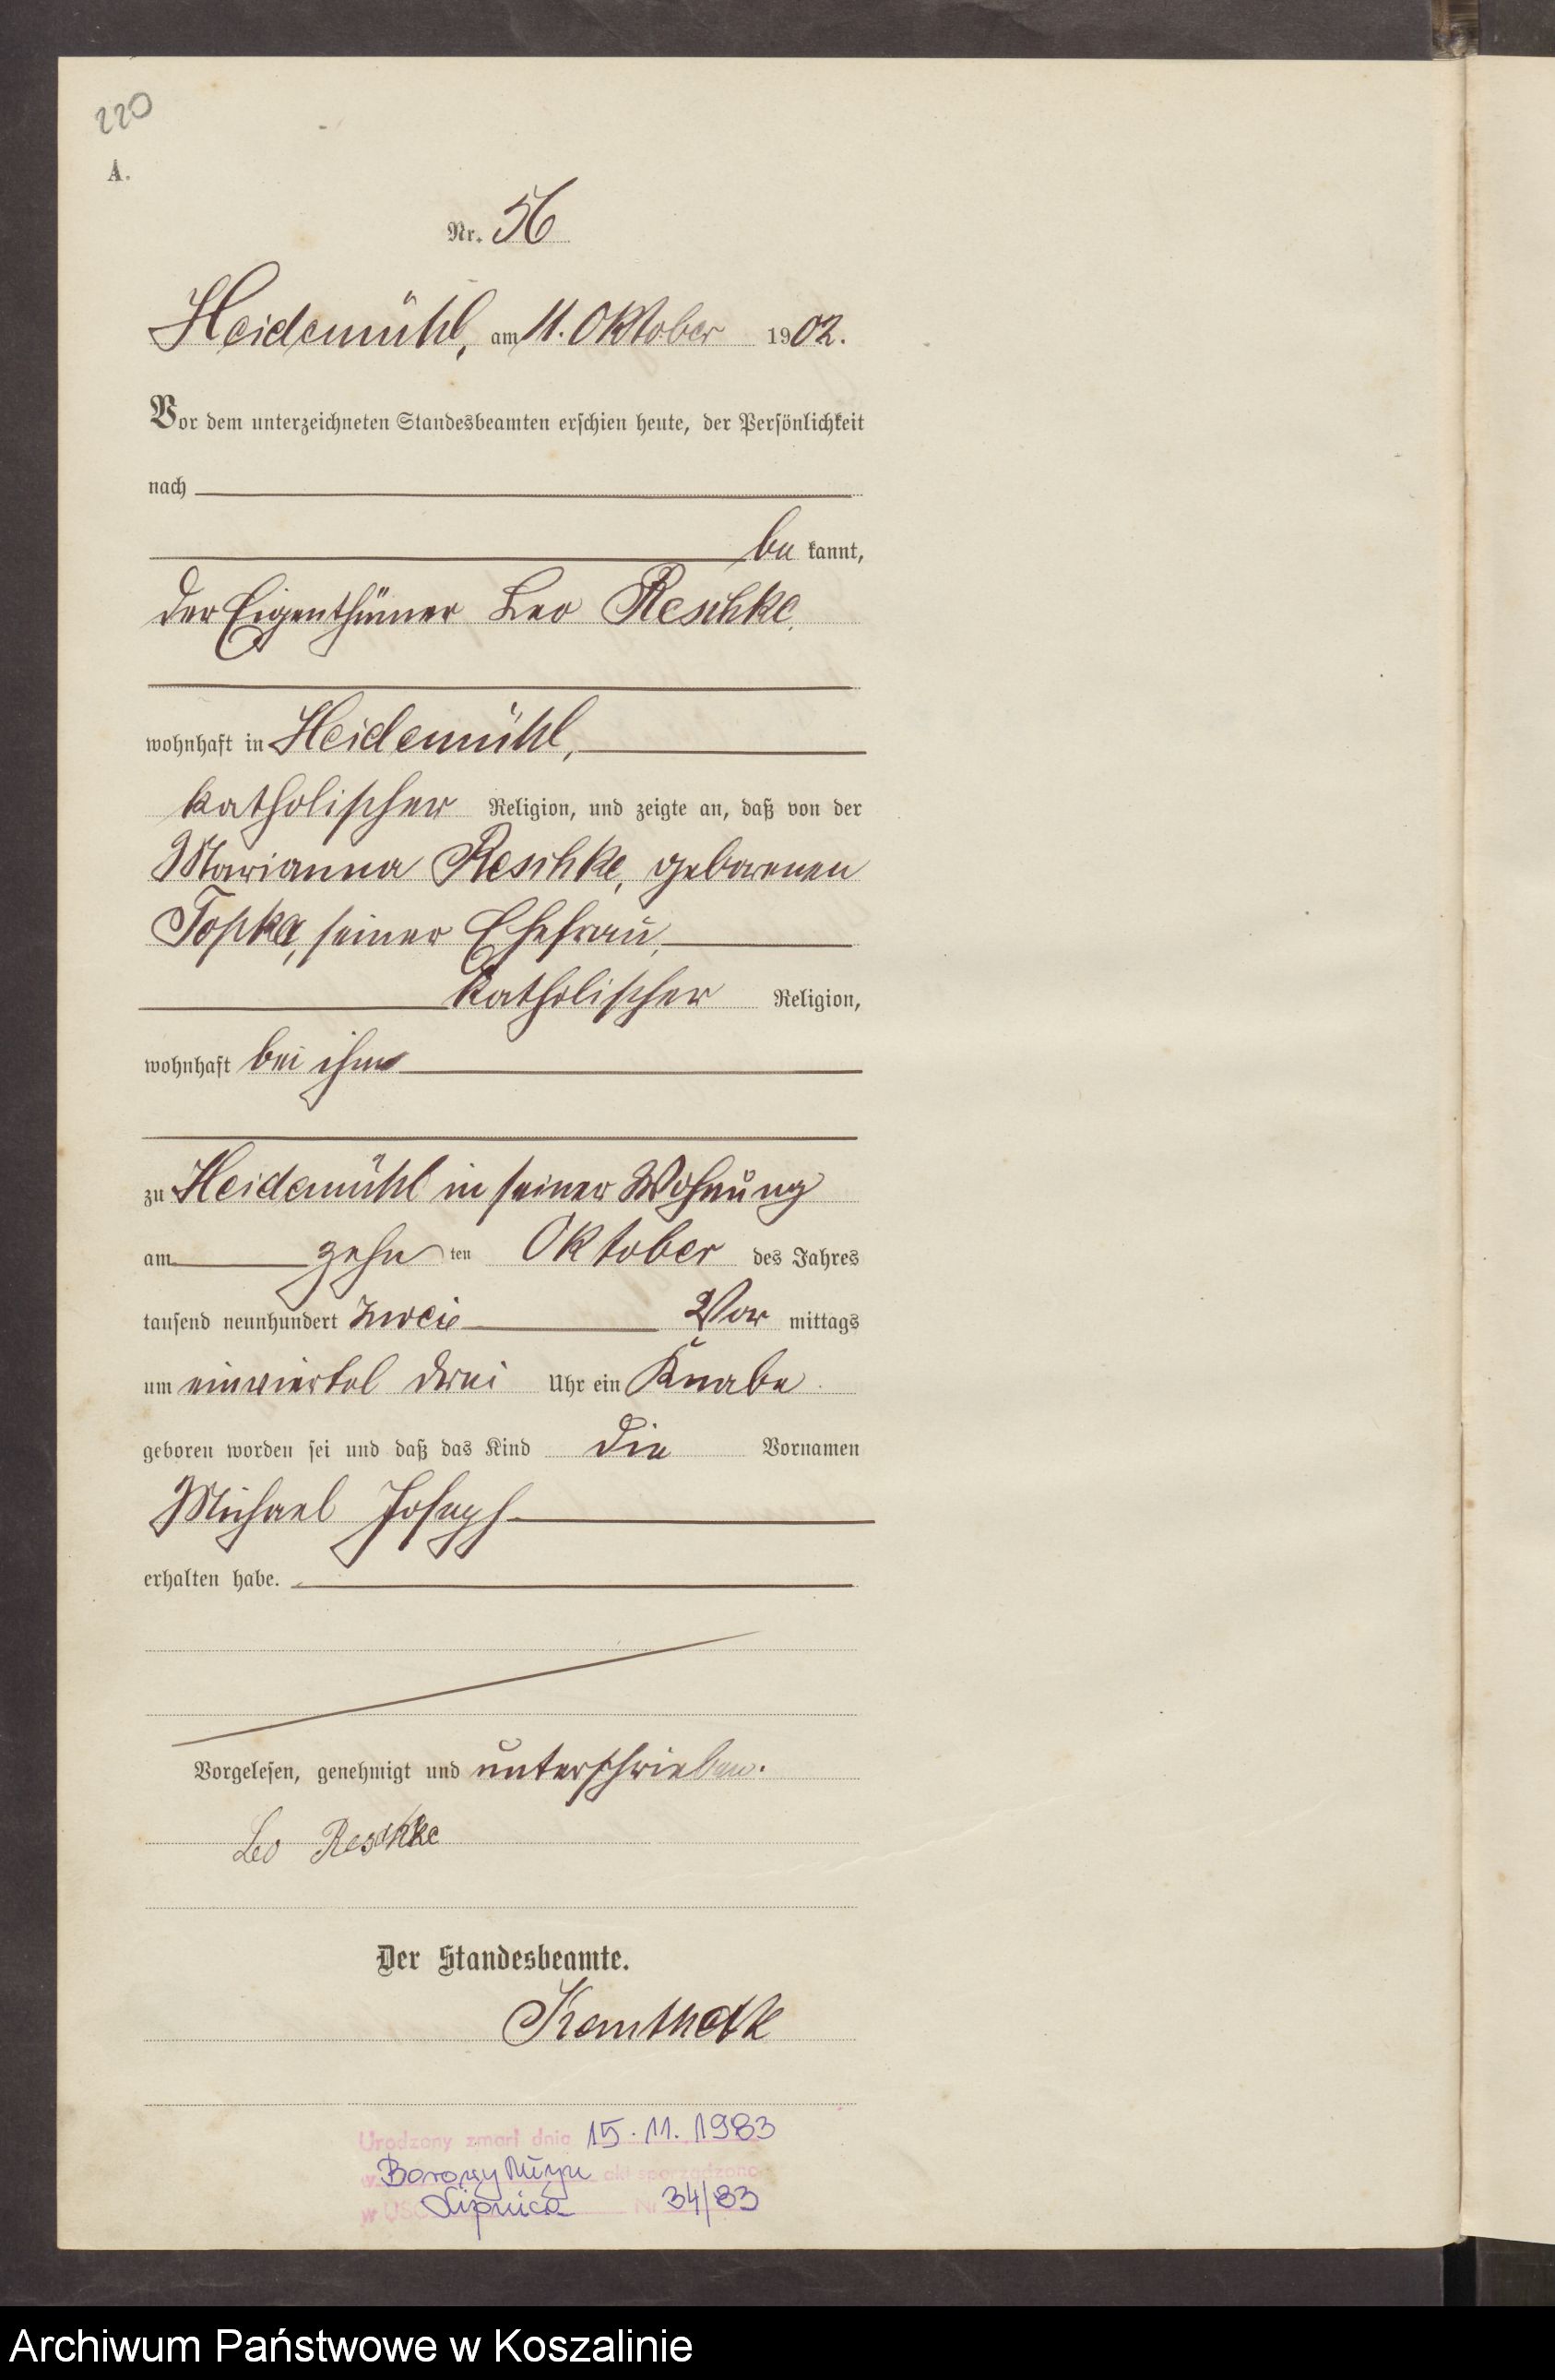 220
A.
Nr. 56
Heidemühl, am 11. Oktober 1902.
Vor dem unterzeichneten Standesbeamten erschien heute, der Persönlichkeit
nach
be kannt,
der Eigenthümer Leo Reschke,
wohnhaft in Heidemühl,
katholischer Religion, und zeigte an, daß von der
Marianna Reschke, geborenen
Topka, seiner Ehefrau,
katholischer Religion,
wohnhaft bei ihm
zu Heidemühl in seiner Wohnung
am zehn ten Oktober des Jahres
tausend neunhundert zwei Vor mittags
um einviertel drei Uhr ein Knabe
geboren worden sei und daß das Kind die Vornamen
Michael Joseph
erhalten habe.
Vorgelesen, genehmigt und unterschrieben.
Leo Reschke
Der Standesbeamte.
Urodzony zmarł dnia 15.11.1983
w Borowy Młyn akt sporządzono
w USC Lipnica Nr 34/83
Archiwum Państwowe w Koszalinie